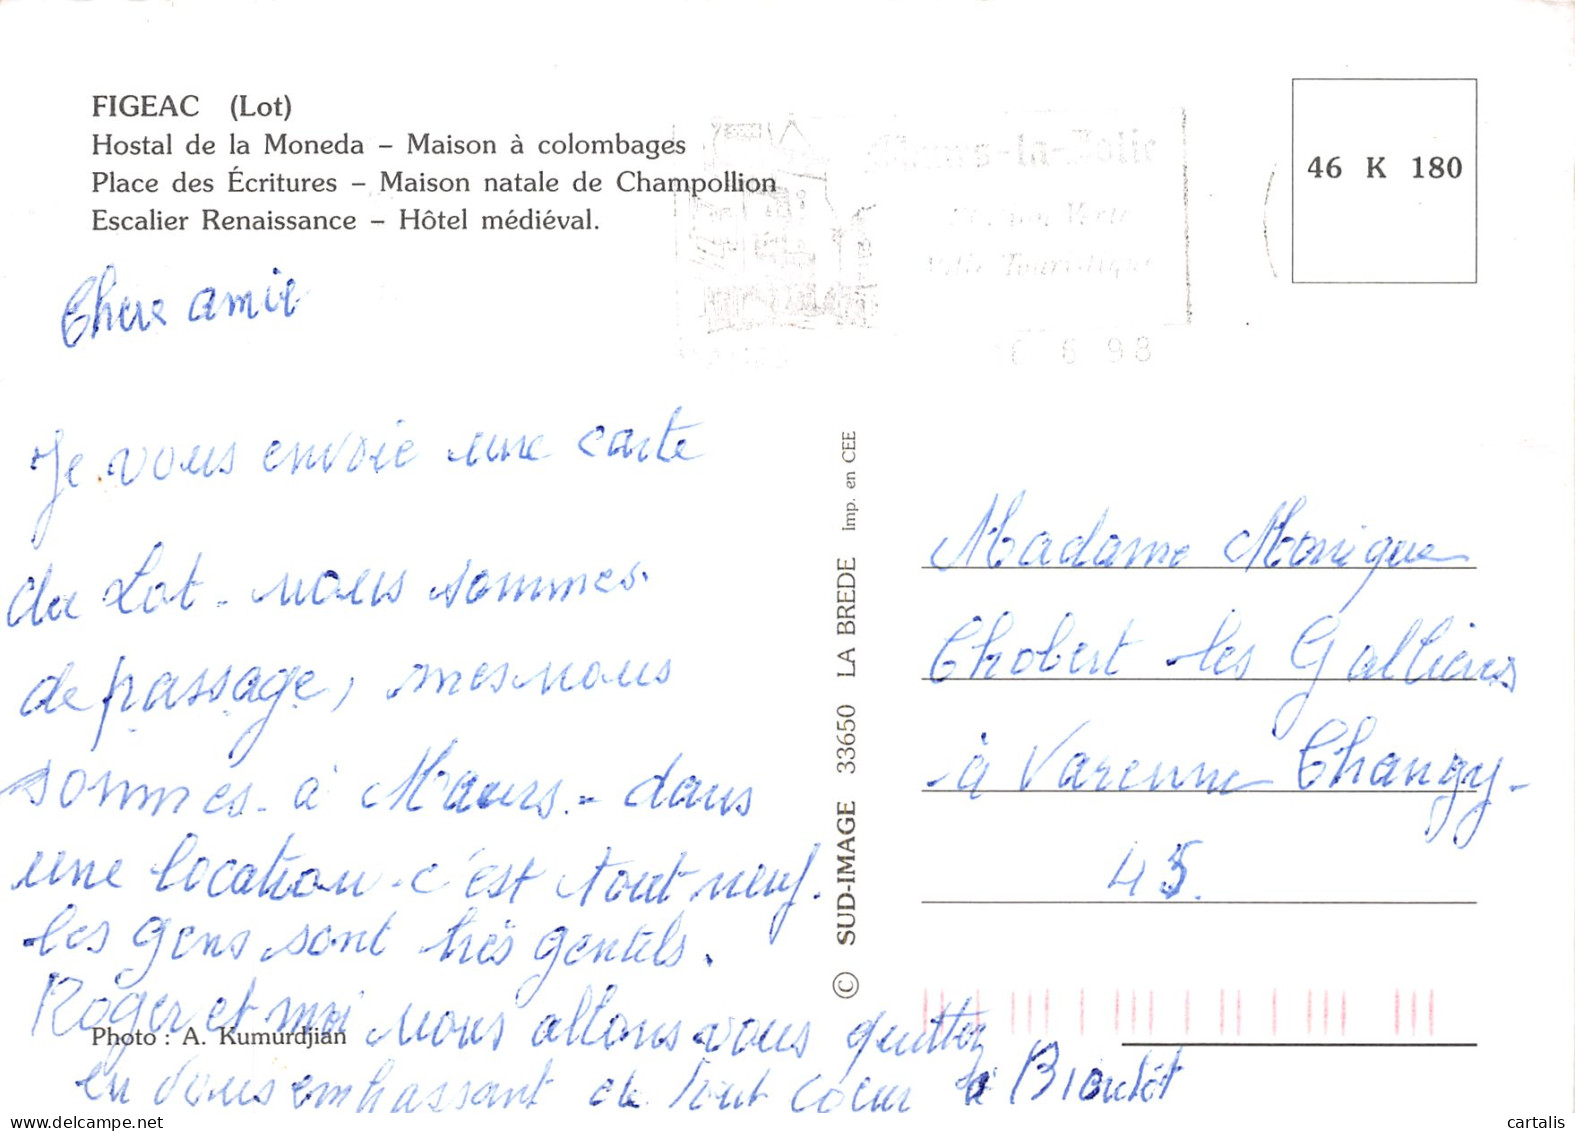 FIGEAC (Lot)
Hostal de la Moneda – Maison à colombages
Place des Écritures – Maison natale de Champollion
Escalier Renaissance – Hôtel médiéval.
46 K 180
Maurs-la-Jolie
Station Verte
Ville Touristique
6 98
Chere amie
Je vous envoie une carte
du Lot - nous sommes
de passage, mes nous
sommes - à Maurs - dans
une location - c'est tout neuf.
les gens sont très gentils.
Roger et moi nous allons vous quittez
en vous embrassant de tout coeur a Bientôt
Photo : A. Kumurdjian
© SUD-IMAGE 33650 LA BREDE Imp. en CEE
Madame Monique
Chobert les Galliers
à Varenne Changy -
45.
cartalis